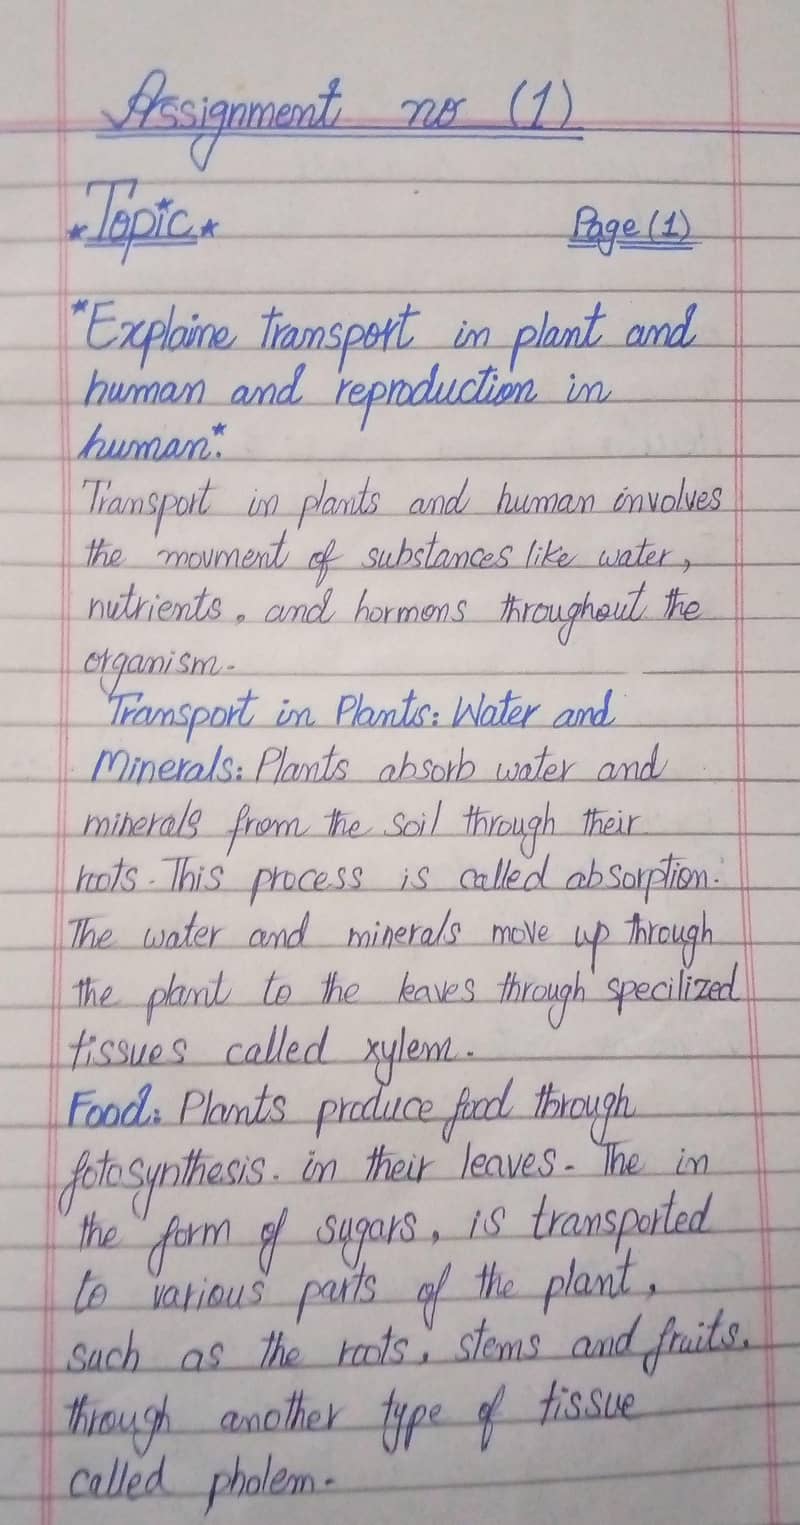 Assignment no (1)
*Topic*
Page (1)
*Explaine transport in plant and
human and reproduction in
human.*
Transport in plants and human involves
the movment of substances like water,
nutrients, and hormons throughout the
organism.
Transport in Plants: Water and
Minerals: Plants absorb water and
minerals from the soil through their
roots. This process is called absorption.
The water and minerals move up through
the plant to the leaves through specilized
tissues called xylem.
Food: Plants produce food through
fotosynthesis. in their leaves. The in
the form of sugars, is transported
to various parts of the plant,
such as the roots, stems and fruits.
through another type of tissue
called pholem.